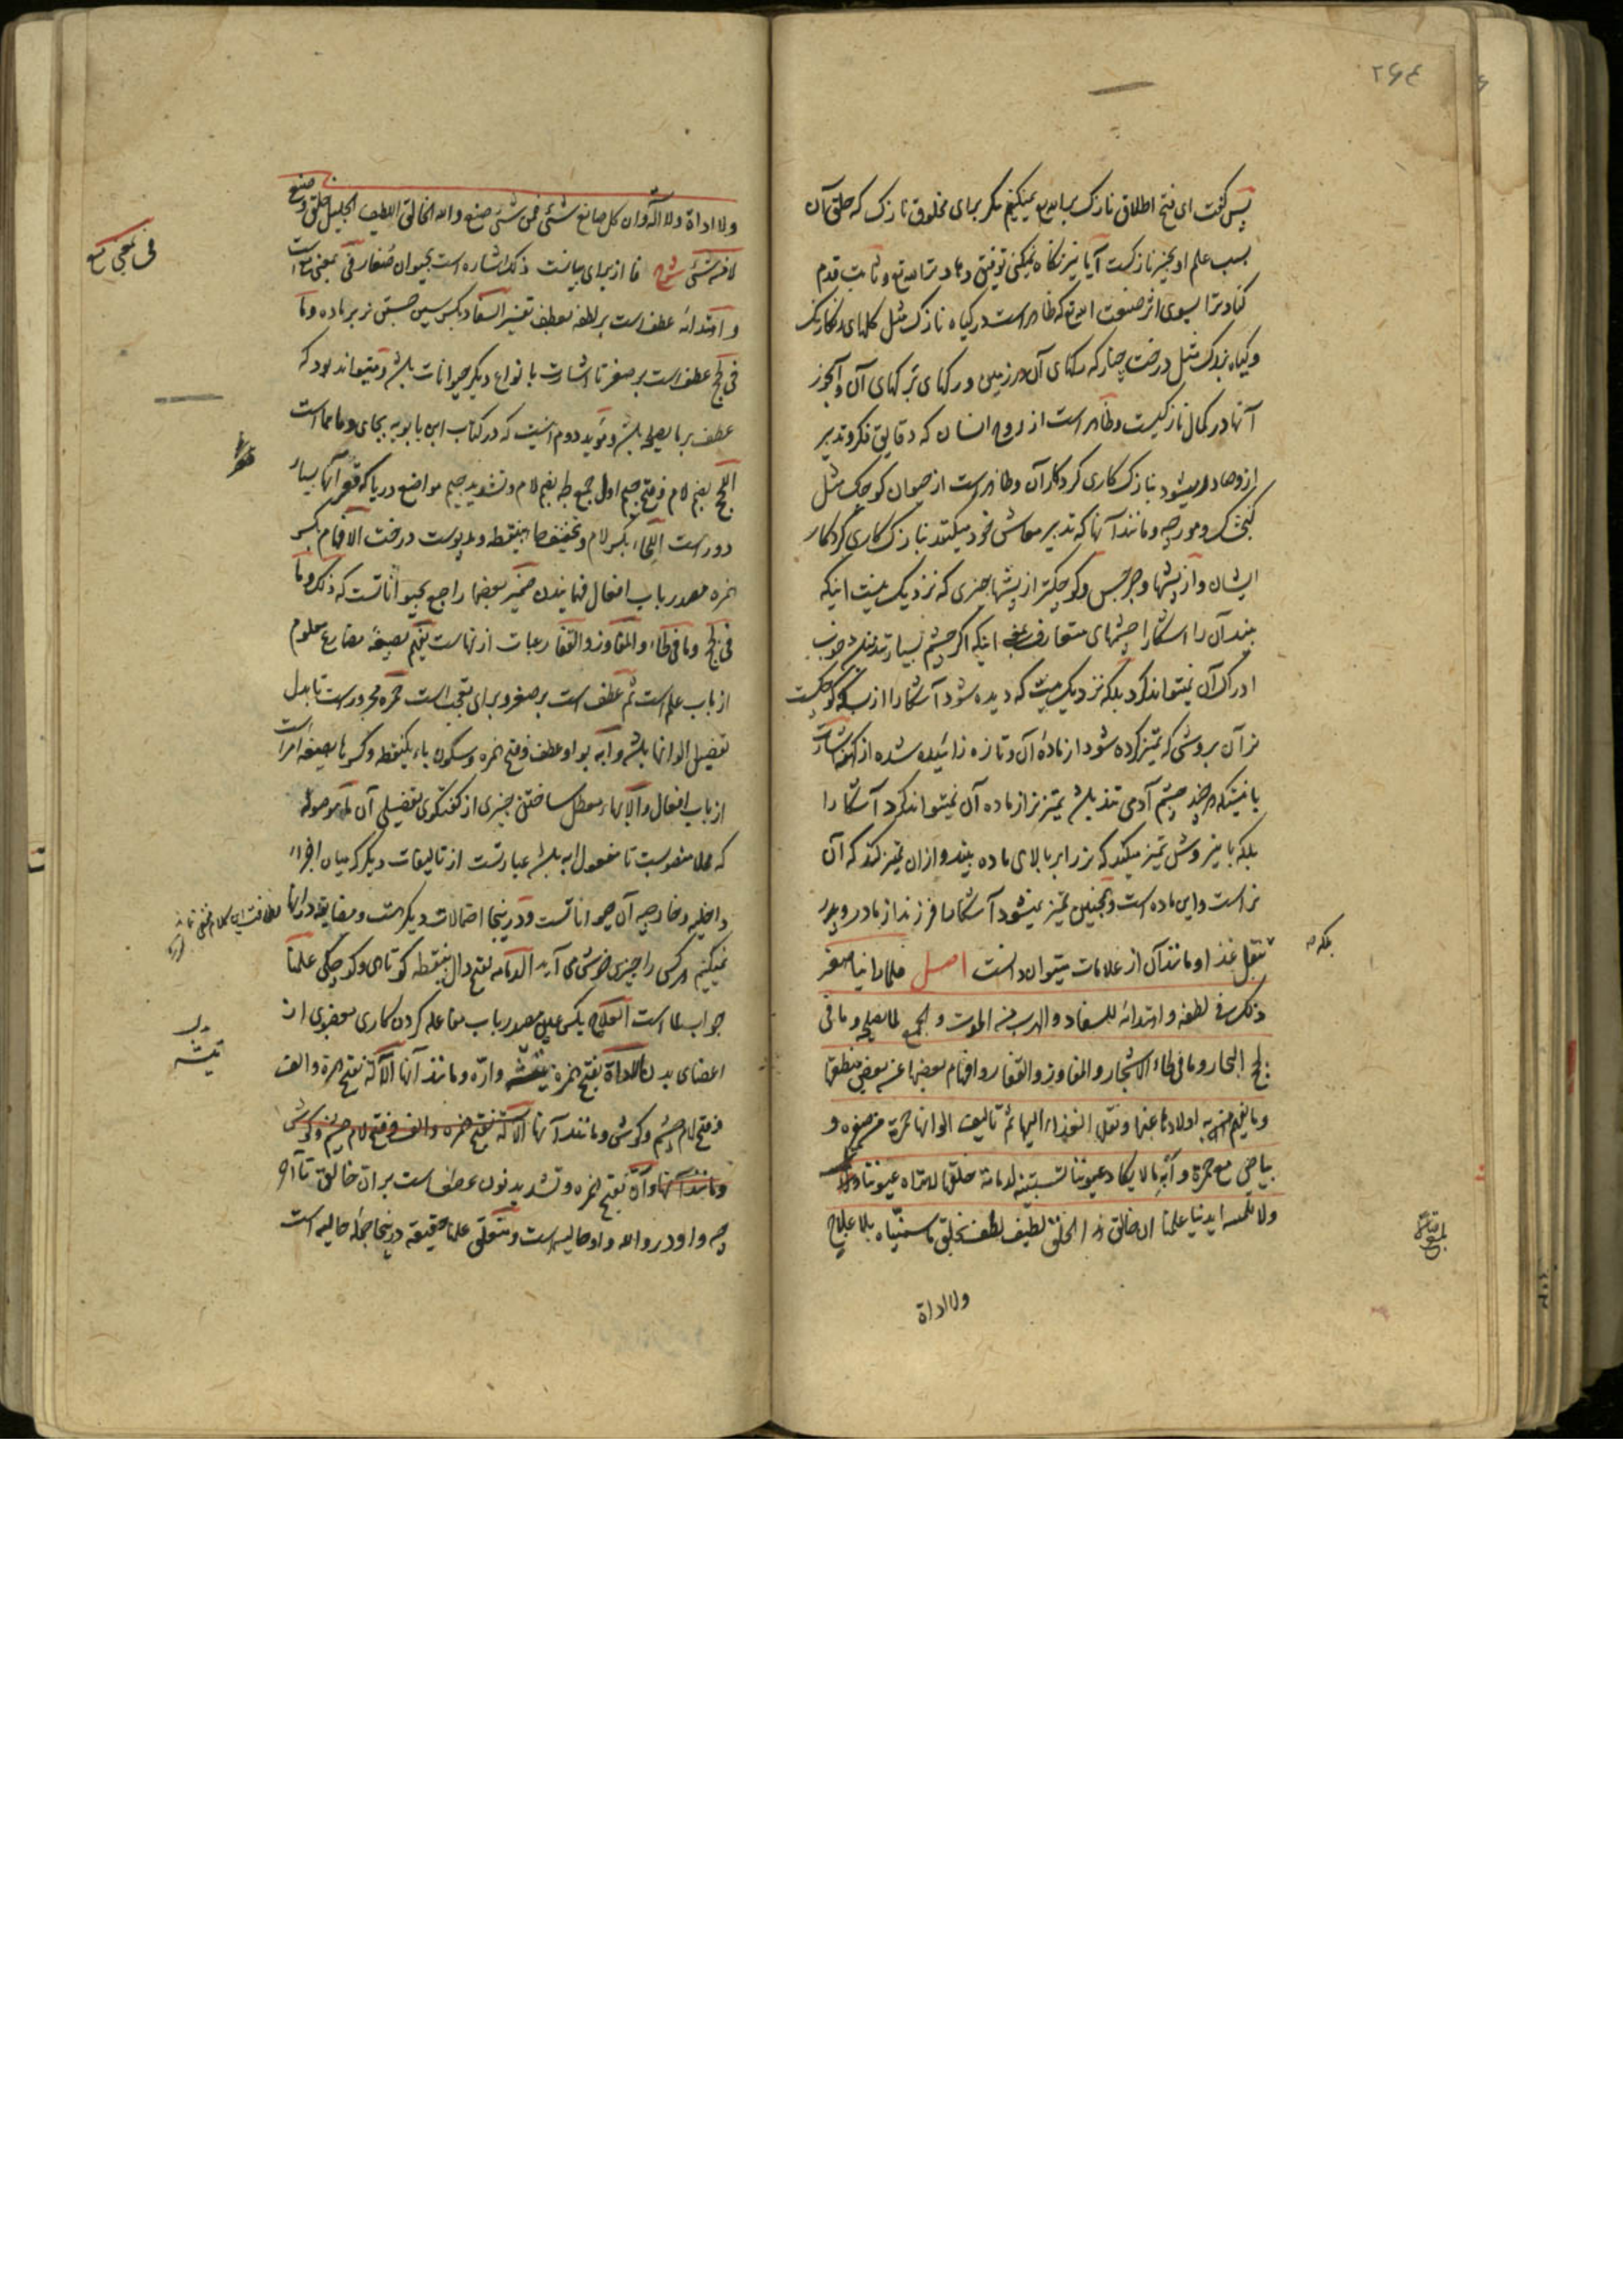 ۲۶۴
پس گفت ای فتح اطلاق نازک برای الله نمیکنیم مگر برای مخلوق نازک که خلق آن
بسبب علم او بچیز نازکست آیا نیز نگاه نمیکنی توفیق دهاد ترا الله تع و ثابت قدم
کناد ترا بسوی اثر صنعت الله تع که ظاهر است در گیاه نازک مثل گلهای رنگارنگ
و گیاه بزرگ مثل درخت چنار که رگهای آن در زمین و رگهای برگهای آن و آنچه از
آنها در کمال نازکیست و ظاهر است از روح انسان که دقایق فکر و تدبیر
ازو صادر میشود بنازک کاری کردگار آن و ظاهر است از حیوان کوچک مثل
گنجشک و مورچه و مانند آنها که تدبیر معاش خود میکنند بنازک کاری کردگار
ایشان و از پشها و جرجس و کوچکتر از پشها چیزی که نزدیک نیست اینکه
بیند آن را آشکارا چشمهای متعارف یعنی اینکه اگر چشم بسیار تند نباشد خوب
ادراک آن نمیتواند کرد بلکه نزدیک نیست که دیده شود آشکارا از بسکه کوچکست
نر آن بروشی که تمیز کرده شود از مادهٔ آن و تازه زائیده شده از کهنه
باینکه هر چند چشم آدمی تند باشد تمیز نر از ماده آن نمیتواند کرد آشکارا
بلکه باین روش تمیز میکند که نر را بر بالای ماده بیند و ازان تمیز کند که آن
نر است و این ماده است و همچنین تمیز نمیشود آشکارا فرزند از مادر و پدر
بلکه
بنقل غذا و مانند آن از علامات میتوان دانست اصل فلما راینا صغر
ذلک فی لطفه و اهتدائه للسفاد و الهرب من الموت و الجمع لما یصلحه و ما فی
لجج البحار و ما فی لحاء الاشجار و المفاوز و القفار و افهام بعضها عن بعض منطقها
و ما یفهم به اولادها عنها و نقل الغذاء الیها ثم تالیف الوانها حمرة مع صفرة و
بیاض مع حمرة و انه ما لا یکاد عیوننا تستبینه لدمامة خلقها لا تراه عیوننا
ولا تلمسه ایدینا علمنا ان خالق هذا الخلق لطیف لطف بخلق ما سمیناه بلا علاج
ولا اداة
ولا اداة ولا آلة و ان کل صانع شیء فمن شیء صنع و الله الخالق اللطیف الجلیل خلق و صنع
لا من شیء شرح ما از برای بیانست ذلک اشاره است بحیوان صغار فی بمعنی مع است
فی بمعنی مع
و اهتدائه عطف است بر لطفه بعطف تفسیر السفاد بکسر سین جستن نر بر ماده و ما
فی لجج عطف است بر صغر تا اشارت بانواع دیگر حیوانات باشد و میتواند بود که
عطف بر ما یصلحه باشد و مؤید دوم اینست که در کتاب ابن بابویه بجای و ما مما است
اللجج بضم لام و فتح جیم اول جمع لجه بضم لام و تشدید جیم مواضع دریا که قعر آنها بسیار
دور است اللحاء بکسر لام و تخفیف حاء بی نقطه و مد پوست درخت الافهام بکسر
همزه مصدر باب افعال فهمانیدن ضمیر بعضها راجع بحیواناتست که ذلک و ما
فی لجج و ما فی لحاء و المفاوز و القفار عبارت ازنهاست یفهم بصیغهٔ مضارع معلوم
از باب علم است ثم عطف است بر صغر و برای تعجب است حمرة مجرور است تا بدل
تفصیل الوانها باشد و ابه بواو عطف و فتح همزه و سکون باء یکنقطه و کسر ها بصیغه امر است
از باب افعال و الابهاء معطل ساختن چیزی از گفتگوی تفصیلی آن ما موصوله
که محلا منصوبست تا مفعول ابه باشد عبارتست از تالیفات دیگر که میان اجزاء
داخلیه و خارجیه آن حیواناتست و درینجا احتمالات دیگر هست و مضایقه در آنها
نمیکنیم هر کس را چیزی خوش می آید الدمامه بفتح دال بی نقطه کوتاهی و کوچکی علمنا
جواب لما است العلاج بکسر عین مصدر باب مفاعله کردن کاری بعضوی از
اعضای بدن الاداة بفتح همزه تیشه و اره و مانند آنها الآلة بفتح همزه و الف
تیشه
و فتح لام چشم و گوش و مانند آنها الآلة بفتح همزه و الف و فتح لام چشم و گوش
و مانند آنها و ان بفتح همزه و تشدید نون عطف است بر ان خالق تا آخر
چه واو در و الله واو حالیه است و متعلق علمنا حقیقة درینجا جمله حالیه است